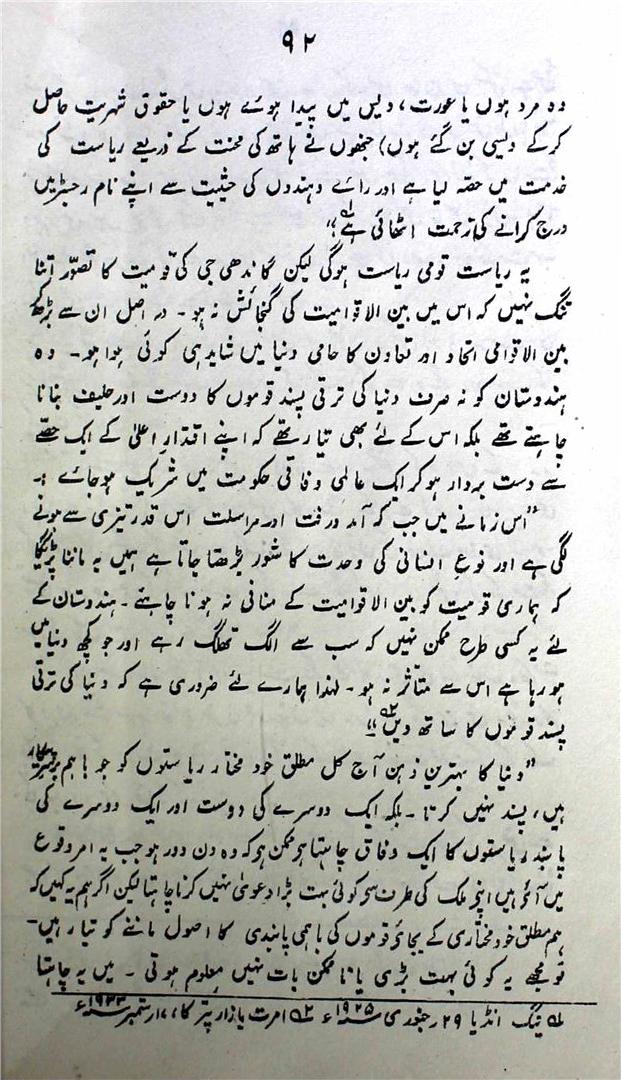 ۹۲
وہ مرد ہوں یا عورت، دیس میں پیدا ہوئے ہوں یا حقوق شہریت حاصل
کرکے دیسی بن گئے ہوں) جنھوں نے ہاتھ کی محنت کے ذریعے ریاست کی
خدمت میں حصہ لیا ہے اور رائے دہندوں کی حیثیت سے اپنے نام رجسٹر میں
درج کرانے کی زحمت اٹھائی ہے ۱؎"
یہ ریاست قومی ریاست ہوگی لیکن گاندھی جی کی قومیت کا تصوّر اتنا
تنگ نہیں کہ اس میں بین الاقوامیت کی گنجائش نہ ہو۔ در اصل ان سے بڑھ کر
بین الاقوامی اتحاد اور تعاون کا حامی دنیا میں شاید ہی کوئی ہوا ہو۔ وہ
ہندوستان کو نہ صرف دنیا کی ترقی پسند قوموں کا دوست اور حلیف بنانا
چاہتے تھے بلکہ اس کے لئے بھی تیار تھے کہ اپنے اقتدارِ اعلیٰ کے ایک حصّے
سے دست بردار ہو کر ایک عالمی وفاقی حکومت میں شریک ہو جائے :۔
"اس زمانے میں جب کہ آمد و رفت اور مراسلت اس قدر تیزی سے ہونے
لگی ہے اور نوعِ انسانی کی وحدت کا شعور بڑھتا جاتا ہے ہمیں یہ ماننا پڑیگا
کہ ہماری قومیت کو بین الاقوامیت کے منافی نہ ہونا چاہئے۔ ہندوستان کے
لئے یہ کسی طرح ممکن نہیں کہ سب سے الگ تھلگ رہے اور جو کچھ دنیا میں
ہو رہا ہے اس سے متاثر نہ ہو۔ لہٰذا ہمارے لئے ضروری ہے کہ دنیا کی ترقی
پسند قوموں کا ساتھ دیں ۲؎"
"دنیا کا بہترین ذہن آج کل مطلق خود مختار ریاستوں کو جو باہم برسرپیکار
ہیں، پسند نہیں کرتا۔ بلکہ ایک دوسرے کی دوست اور ایک دوسرے کی
پابند ریاستوں کا ایک وفاق چاہتا ہو ممکن ہو کہ وہ دن دور ہو جب یہ امر وقوع
میں آئے میں اپنے ملک کی طرف سے کوئی بہت بڑا دعویٰ نہیں کرنا چاہتا لیکن اگر ہم یہ کہیں کہ
ہم مطلق خود مختاری کے بجائے قوموں کی باہمی پابندی کا اصول ماننے کو تیار ہیں۔
تو مجھے یہ کوئی بہت بڑی یا نا ممکن بات نہیں معلوم ہوتی۔ میں یہ چاہتا
۱؎ ینگ انڈیا ۲۹ رجنوری ۱۹۲۵ء ۲؎ امرت بازار پترکا، ۱۷ ستمبر ۱۹۳۳ء